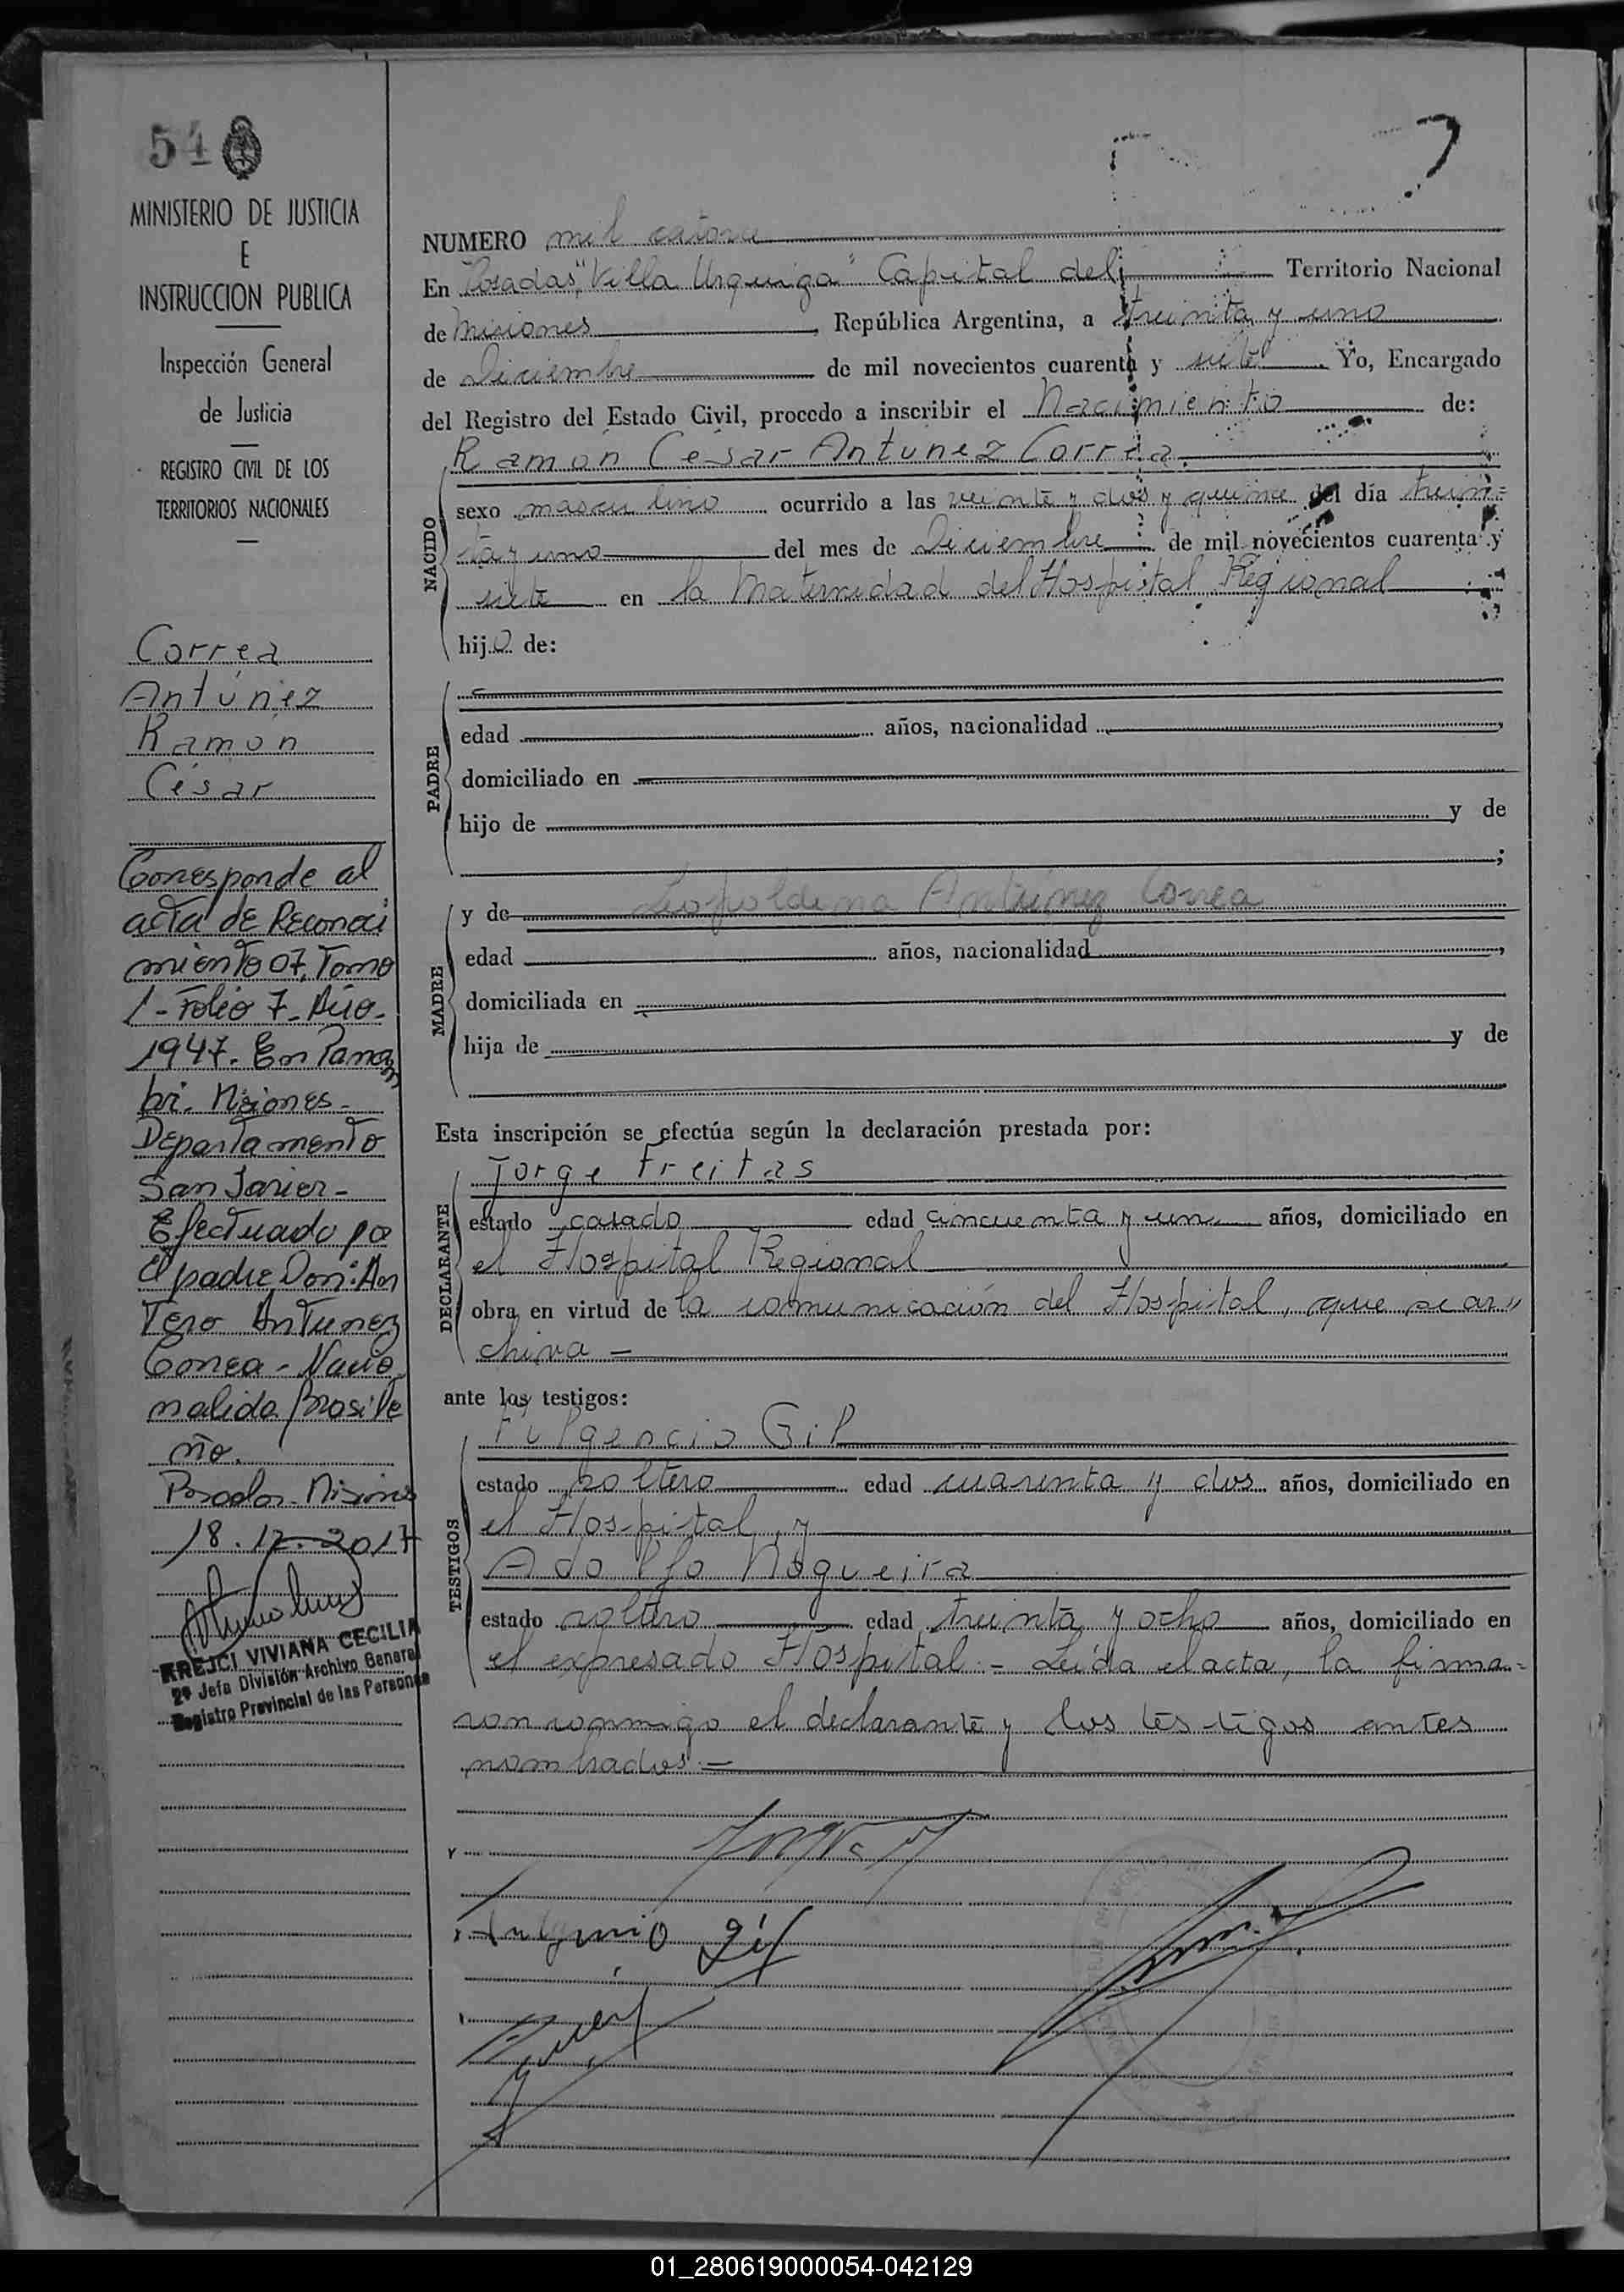 54
MINISTERIO DE JUSTICIA
E
INSTRUCCION PUBLICA
Inspección General
de Justicia
REGISTRO CIVIL DE LOS
TERRITORIOS NACIONALES
Correa
Antúnez
Ramón
César
Corresponde al
acta de Reconoci
miento 07, Tomo
1 - Folio 7 - Año -
1947. En Panam
bi. Misiones -
Departamento
San Javier -
Efectuado po
el padre Don: An
Tero Antunez
Correa - Nacio
nalida Brasile
ño.
Posadas - Misiones
18.12.2017
KREJCI VIVIANA CECILIA
2ª Jefa División Archivo General
Registro Provincial de las Personas
NUMERO mil catorce
En Posadas, "Villa Urquiza" Capital del Territorio Nacional
de Misiones, República Argentina, a treinta y uno
de Diciembre de mil novecientos cuarenta y siete Yo, Encargado
del Registro del Estado Civil, procedo a inscribir el Nacimiento de:
NACIDO
Ramón César Antúnez Correa.
sexo masculino ocurrido a las veinte y dos y quince del día trein=
ta y uno del mes de Diciembre de mil novecientos cuarenta y
siete en la Maternidad del Hospital Regional
hijo de:
PADRE
edad años, nacionalidad ,
domiciliado en
hijo de y de
;
MADRE
y de Leopoldina Antúnez Correa
edad años, nacionalidad ,
domiciliada en
hija de y de
Esta inscripción se efectúa según la declaración prestada por:
DECLARANTE
Jorge Freitas
estado casado edad cincuenta y un años, domiciliado en
el Hospital Regional
obra en virtud de la comunicación del Hospital, que se ar"
chiva -
ante los testigos:
TESTIGOS
Fulgencio Gil
estado soltero edad cuarenta y dos años, domiciliado en
el Hospital, y
Adolfo Nogueira
estado soltero edad treinta y ocho años, domiciliado en
el expresado Hospital - Leída el acta, la firma=
ron conmigo el declarante y los testigos antes
nombrados -
01_280619000054-042129